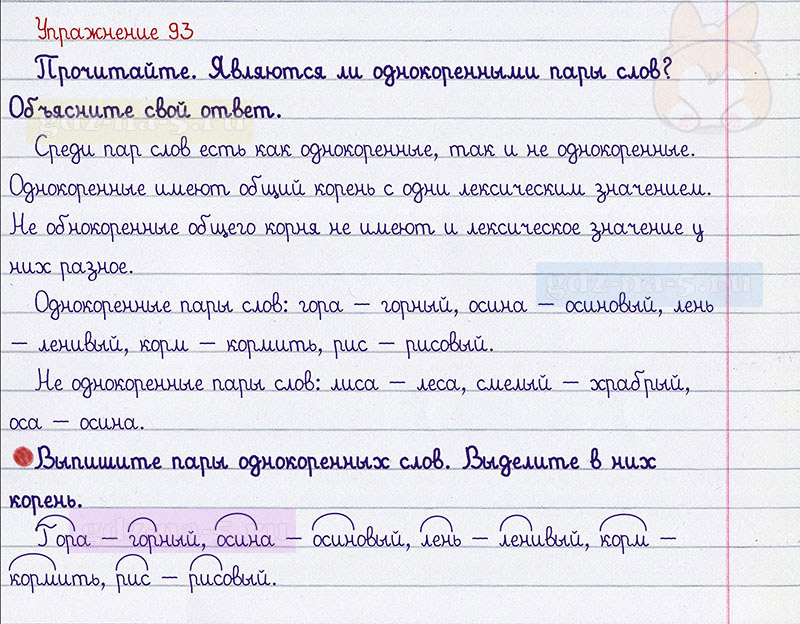 Упражнение 93
Прочитайте. Являются ли однокоренными пары слов?
Объясните свой ответ.
gdz-na-5.ru
Среди пар слов есть как однокоренные, так и не однокоренные.
Однокоренные имеют общий корень с одни лексическим значением.
Не обнокоренные общего корня не имеют и лексическое значение у
них разное.
gdz-na-5.ru
Однокоренные пары слов: гора – горный, осина – осиновый, лень
– ленивый, корм – кормить, рис – рисовый.
Не однокоренные пары слов: лиса – леса, смелый – храбрый,
оса – осина.
Выпишите пары однокоренных слов. Выделите в них
корень.
gdz-na-5.ru
Гора – горный, осина – осиновый, лень – ленивый, корм –
кормить, рис – рисовый.